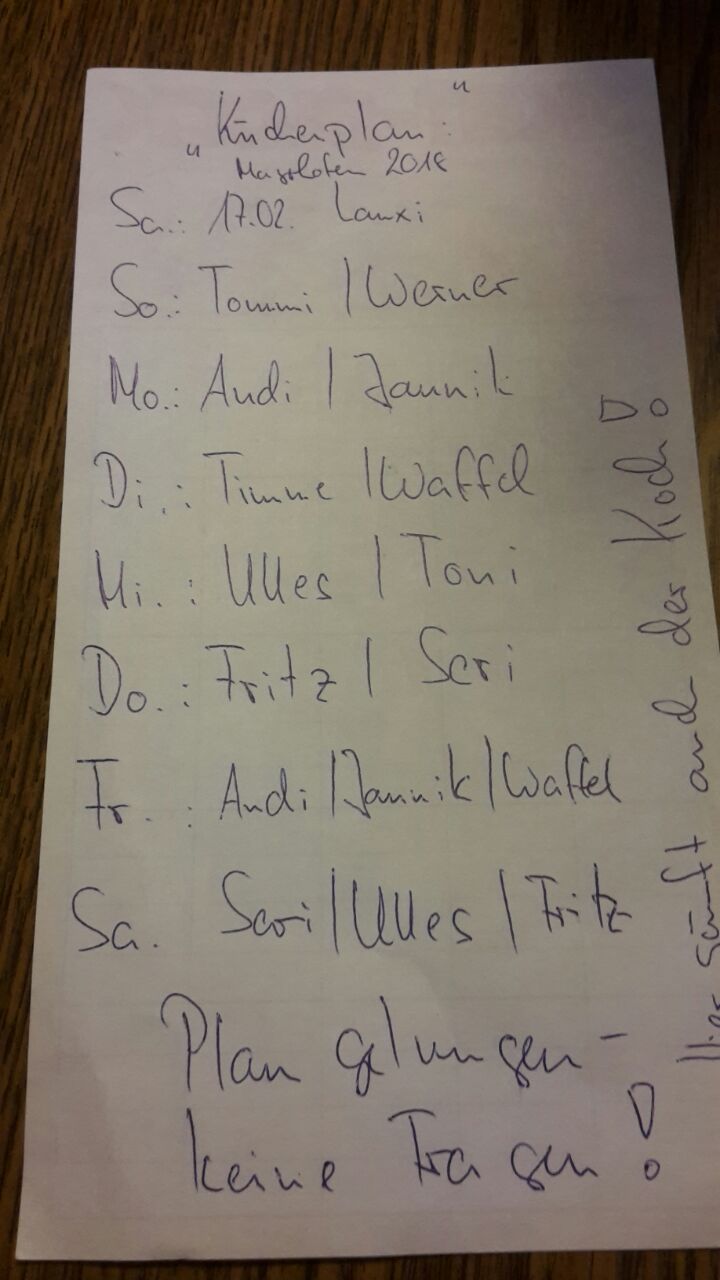 „Küchenplan:“
Mayrhofen 2018
Sa.: 17.02. Lauxi
So.: Tommi / Werner
Mo.: Andi / Jannik
Di.: Timme / Waffel
Mi.: Ulles / Toni
Do.: Fritz / Seri
Fr.: Andi / Jannik / Waffel
Sa. Seri / Ulles / Fritz
Plan gelungen -
keine Fragen!
Hier säuft auch der Koch!